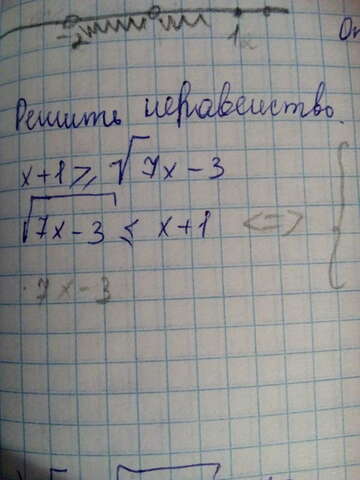 -2 1
От
Решить неравенство.
x+1 ≥ √7x-3
√7x-3 ≤ x+1 <=> {
7x-3